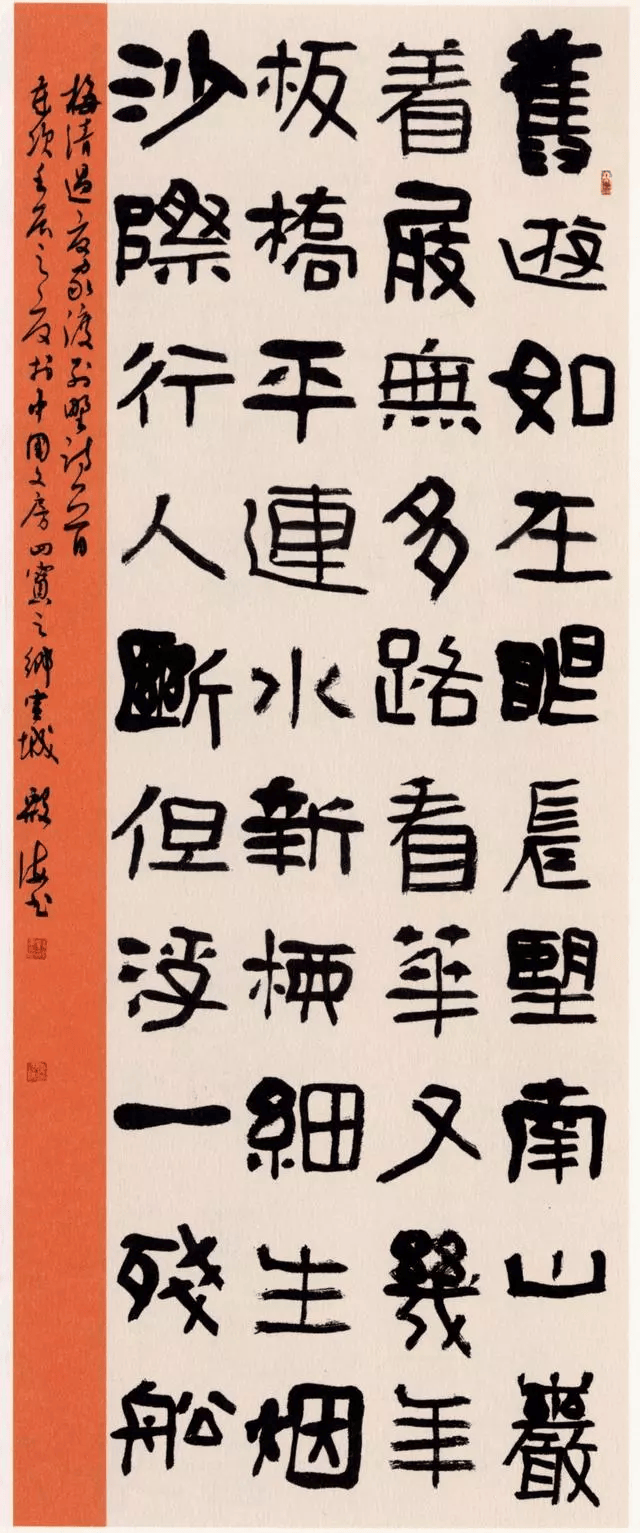 舊遊如在眼長望南山巖
着屐無多路看華又幾年
板橋平連水新柳細生烟
沙際行人斷但浮一殘船
梅清過夏家渡別墅詩一首
歲次壬辰之夏於中國文房四寶之鄉宣城 殷海書